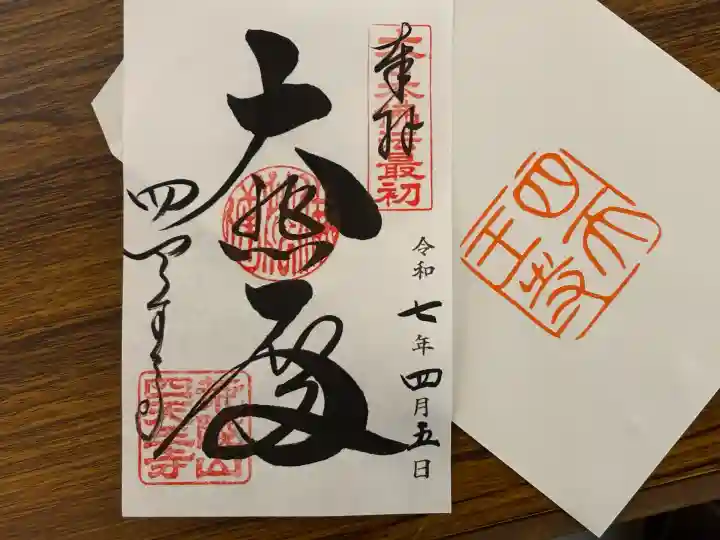 奉拝
大日本佛法最初
令和七年四月五日
大悲殿
四天王寺
荒陵山
四天王寺
四天
王寺